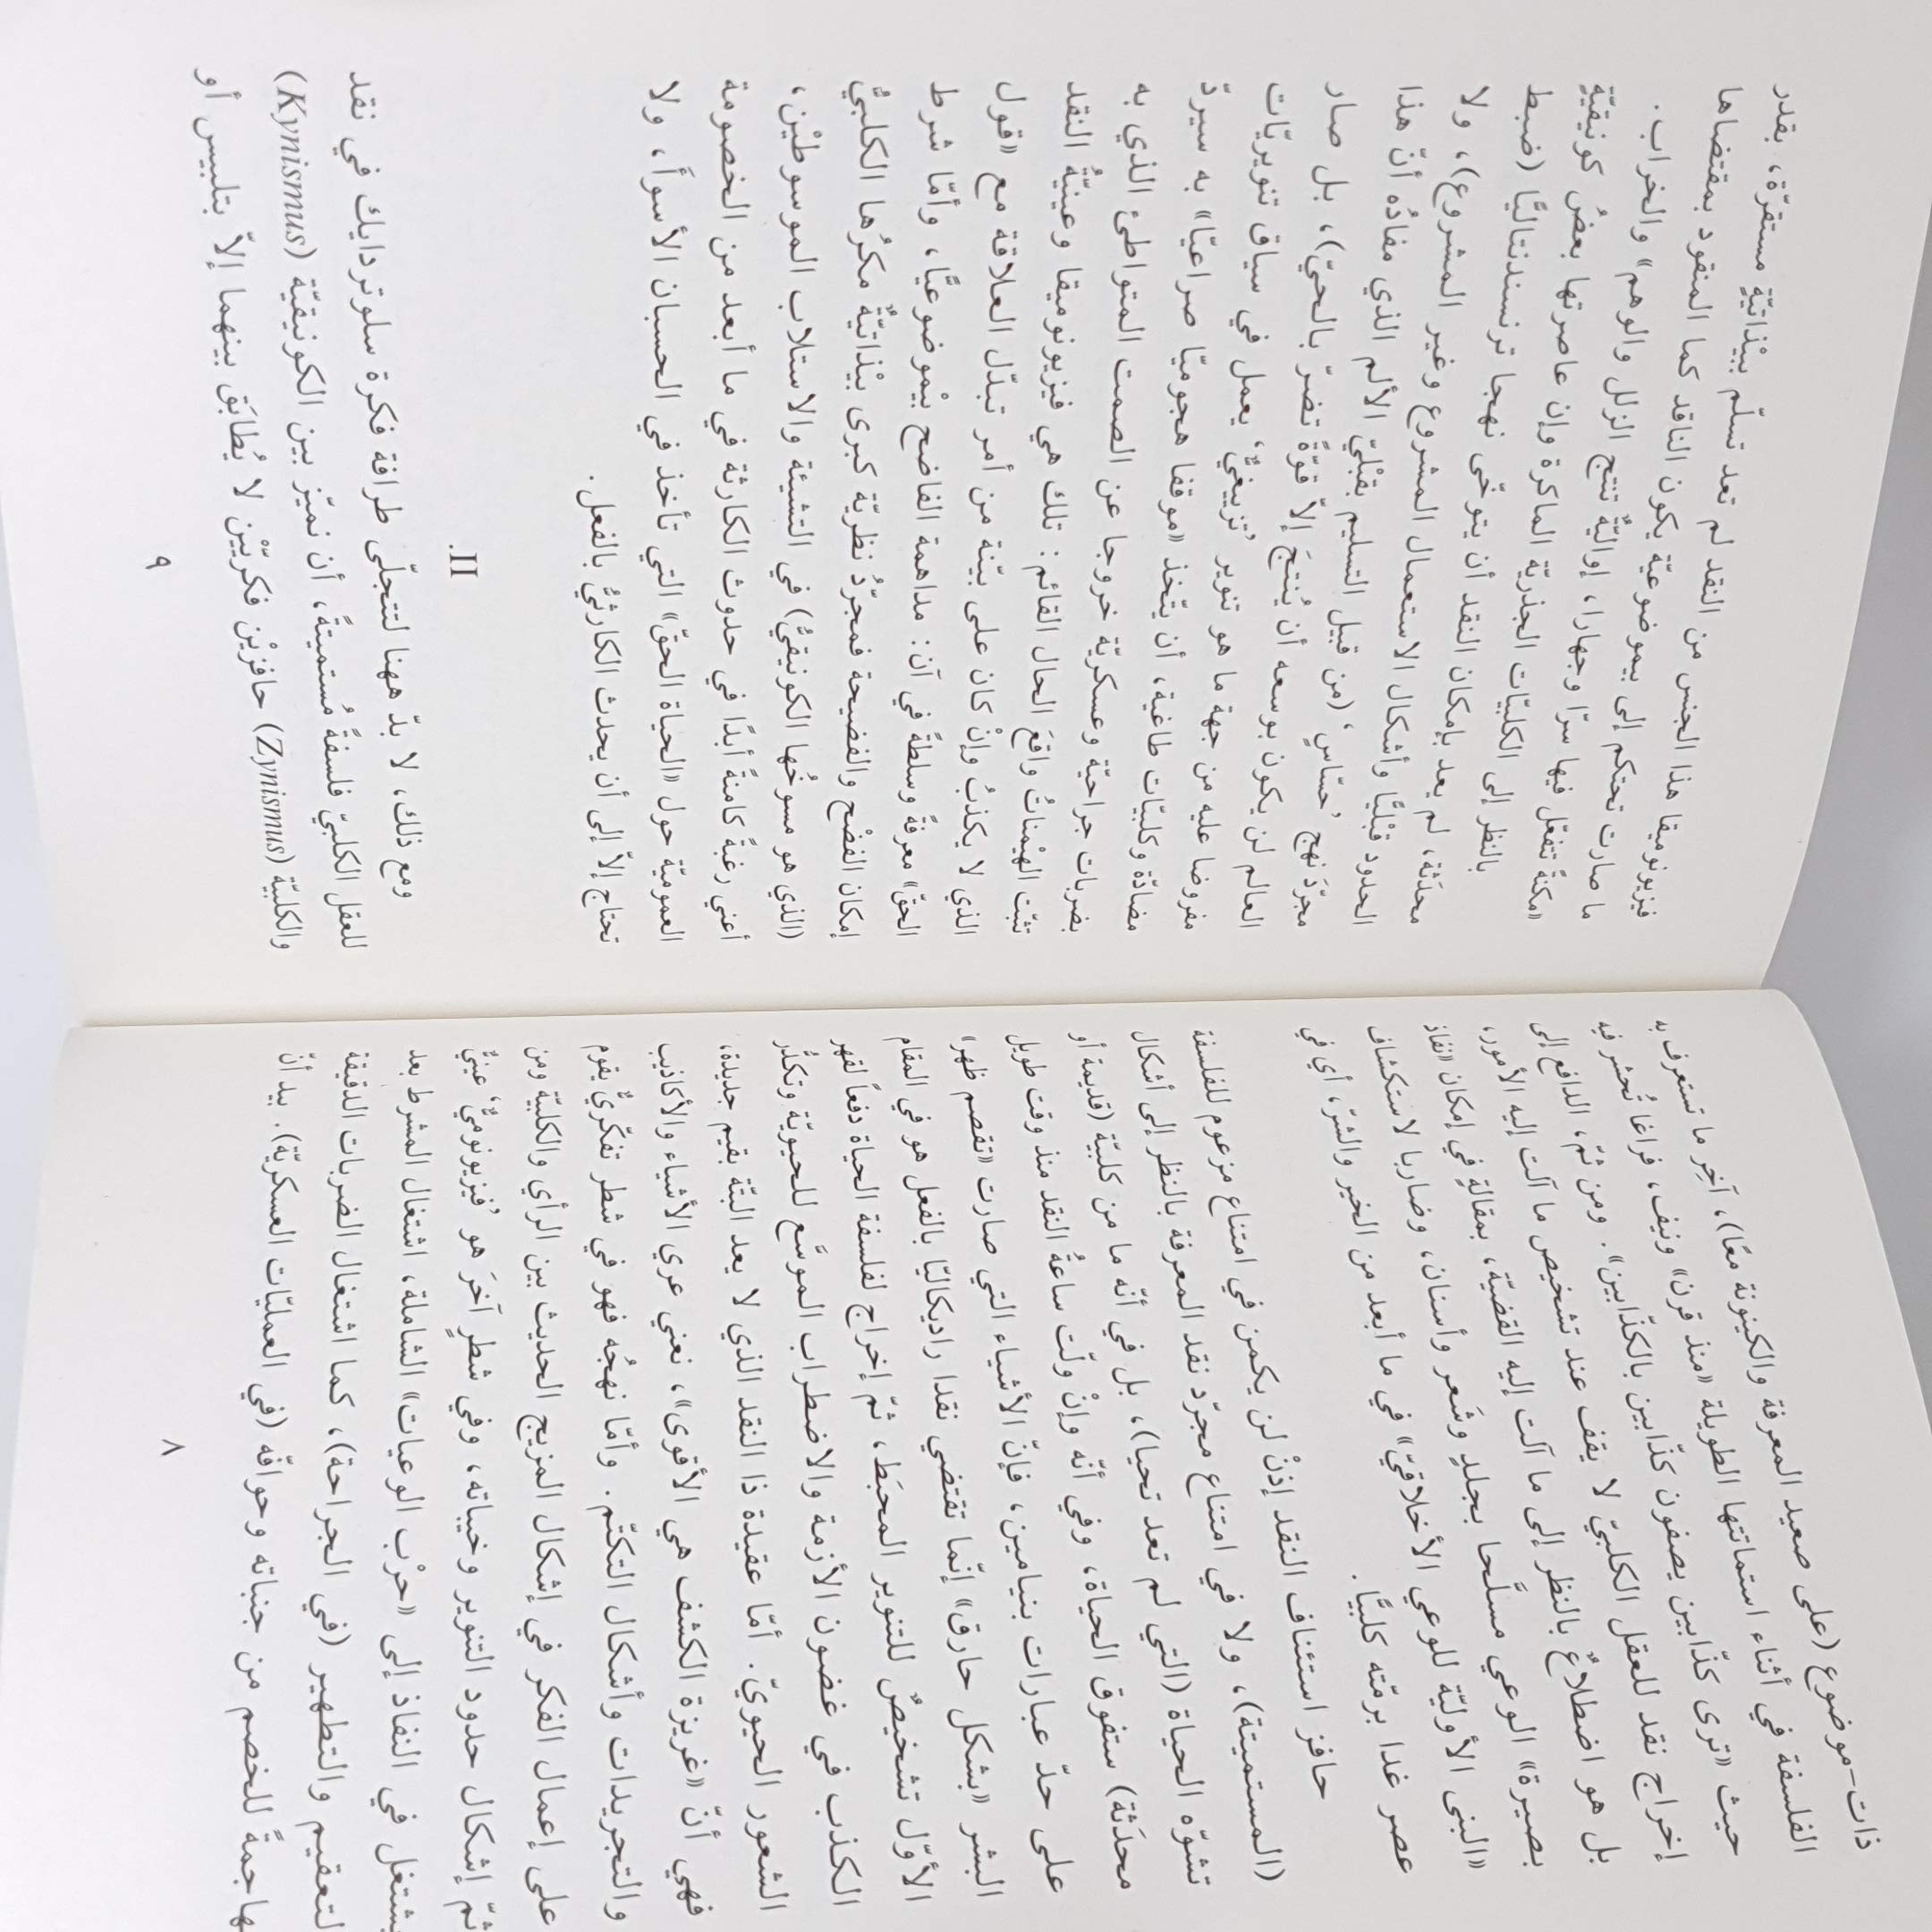 ذات-موضوع (على صعيد المعرفة والكينونة معًا)، آخِر ما تستعرف به
الفلسفة في أثناء استماتتها الطويلة «منذ قرن» ونيف، فراغا تُحشر فيه
حيث «ترى كذّابين يصفون كذّابين بالكذّابين». ومن ثمّ، الدافع إلى
إخراج نقد للعقل الكلبيّ لا يقف عند تشخيص ما آلت إليه الأمور،
بل هو اضطلاعٌ بالنظر إلى ما آلت إليه القضيّة، بمقالةٍ في إمكان «نفاذ
بصيرة» الوعي مسلَّحا بجلدٍ وشَعر وأسنان، وضاربا لاستكشاف
«البنى الأوليّة للوعي الأخلاقيّ» في ما أبعد من الخير والشرّ، أي في
عصر غدا برمّته كلبيًّا.
حافز استئناف النقد إذنْ لن يكمن في امتناع مزعوم للفلسفة
(المستميتة)، ولا في امتناع مجرّد نقد المعرفة بالنظر إلى أشكال
تشوّه الحياة (التي لم تعد تحيا)، بل في أنّه ما من كلبيّة (قديمة أو
محدَثة) ستفوق الحياة، وفي أنّه وإنْ ولّت ساعةُ النقد منذ وقت طويل
على حدّ عبارات بنيامين، فإنّ الأشياء التي صارت «تقصم ظهر»
البشر «بشكل حارق» إنّما تقتضي نقدا راديكاليّا بالفعل هو في المقام
الأوّل تشخيصٌ للتنوير المحبَط، ثمّ إخراج لفلسفة الحياة دفعاً لقهر
الكذب في غضون الأزمة والاضطراب الموسَّع للحيويّة وتكدُّر
الشعور الحيويّ. أمّا عقيدة ذا النقد الذي لا يعد البتّة بقيم جديدة،
فهي أنّ «غريزة الكشف هي الأقوى»، نعني عري الأشياء والأكاذيب
والتجريدات وأشكال التكتّم. وأمّا نهجُه فهو في شطر تفكّريٌّ يقوم
على إعمال الفكر في إشكال المزيج الحديث بين الرأي والكلبيّة ومن
ثمّ إشكال حدود التنوير وخيباته، وفي شطرٍ آخَر هو ’فيزيونوميٌّ‘ عينيٌّ
يشتغل في النفاذ إلى «حرْب الوعيات» الشاملة، اشتغال المشرط بعد
التعقيم والتطهير (في الجراحة)، كما اشتغال الضربات الدقيقة
مهاجمةً للخصم من جنباته وحوافّه (في العمليّات العسكريّة). بيد أنّ
٨
فيزيونوميقا هذا الجنس من النقد لم تعد تسلّم ببْذاتيّةٍ مستقرّة، بقدر
ما صارت تحتكم إلى بيموضوعيّة يكون الناقد كما المنقود بمقتضاها
«مكنةً تتفعّل فيها سرّا وجهارا، إواليّةٌ تنتج الزلل والوهم» والخراب.
بالنظر إلى الكليّات الجذريّة الماكرة وإن عاصرتها بعضُ كونيقيّةٍ
محدَثة، لم يعد بإمكان النقد أن يتوخّى نهجا ترنسندنتاليًّا (ضبط
الحدود قبْليًّا وأشكال الاستعمال المشروع وغير المشروع)، ولا
مجرّدَ نهج ’حسّاسٍ‘ (من قبيل التسليم بقبْليّ الألم الذي مفادُه أنّ هذا
العالم لن يكون بوسعه أن يُنتجَ إلاّ قوّةً تضرّ بالحيّ)، بل صار
مفروضا عليه من جهة ما هو تنوير ’تزييغيٌّ‘ يعمل في سياق تنويريّات
مضادّة وكلبيّات طاغية، أن يتّخذ «موقفا هجوميّا صراعيّا» به سيردّ
بضربات جراحيّة وعسكريّة خروجا عن الصمت المتواطئ الذي به
تثبّت الهيْمناتُ واقعَ الحال القائم: تلك هي فيزيونوميقا وعينيّةُ النقد
الذي لا يكذبُ وإنْ كان على بيّنة من أمر تبدّل العلاقة مع «قول
الحقّ» معرفةً وسلطةً في آن: مداهمة الفاضح بيْموضوعيًّا، وأمّا شرط
إمكان الفضْح والفضيحة فمجرّدُ نظريّة كبرى بيْذاتيّةٌ مكرُها الكلبيُّ
(الذي هو مسوخُها الكونيقيُّ) في التشيئة والاستلاب الموسوطيْن،
أعني رغبةً كامنةً أبدًا في حدوث الكارثة في ما أبعد من الخصومة
العموميّة حول «الحياة الحقّ» التي تأخذ في الحسبان الأسوأَ، ولا
تحتاج إلاّ إلى أن يحدث الكارثيُّ بالفعل.
II.
ومع ذلك، لا بدّ ههنا لتتجلّى طرافة فكرة سلوتردايك في نقد
للعقل الكلبيّ فلسفةً مُستميتةً، أن نميّز بين الكونيقيّة (Kynismus)
والكلبيّة (Zynismus) حافزيْن فكريّيْن لا يُطابَق بينهما إلاّ بتلبيس أو
٩